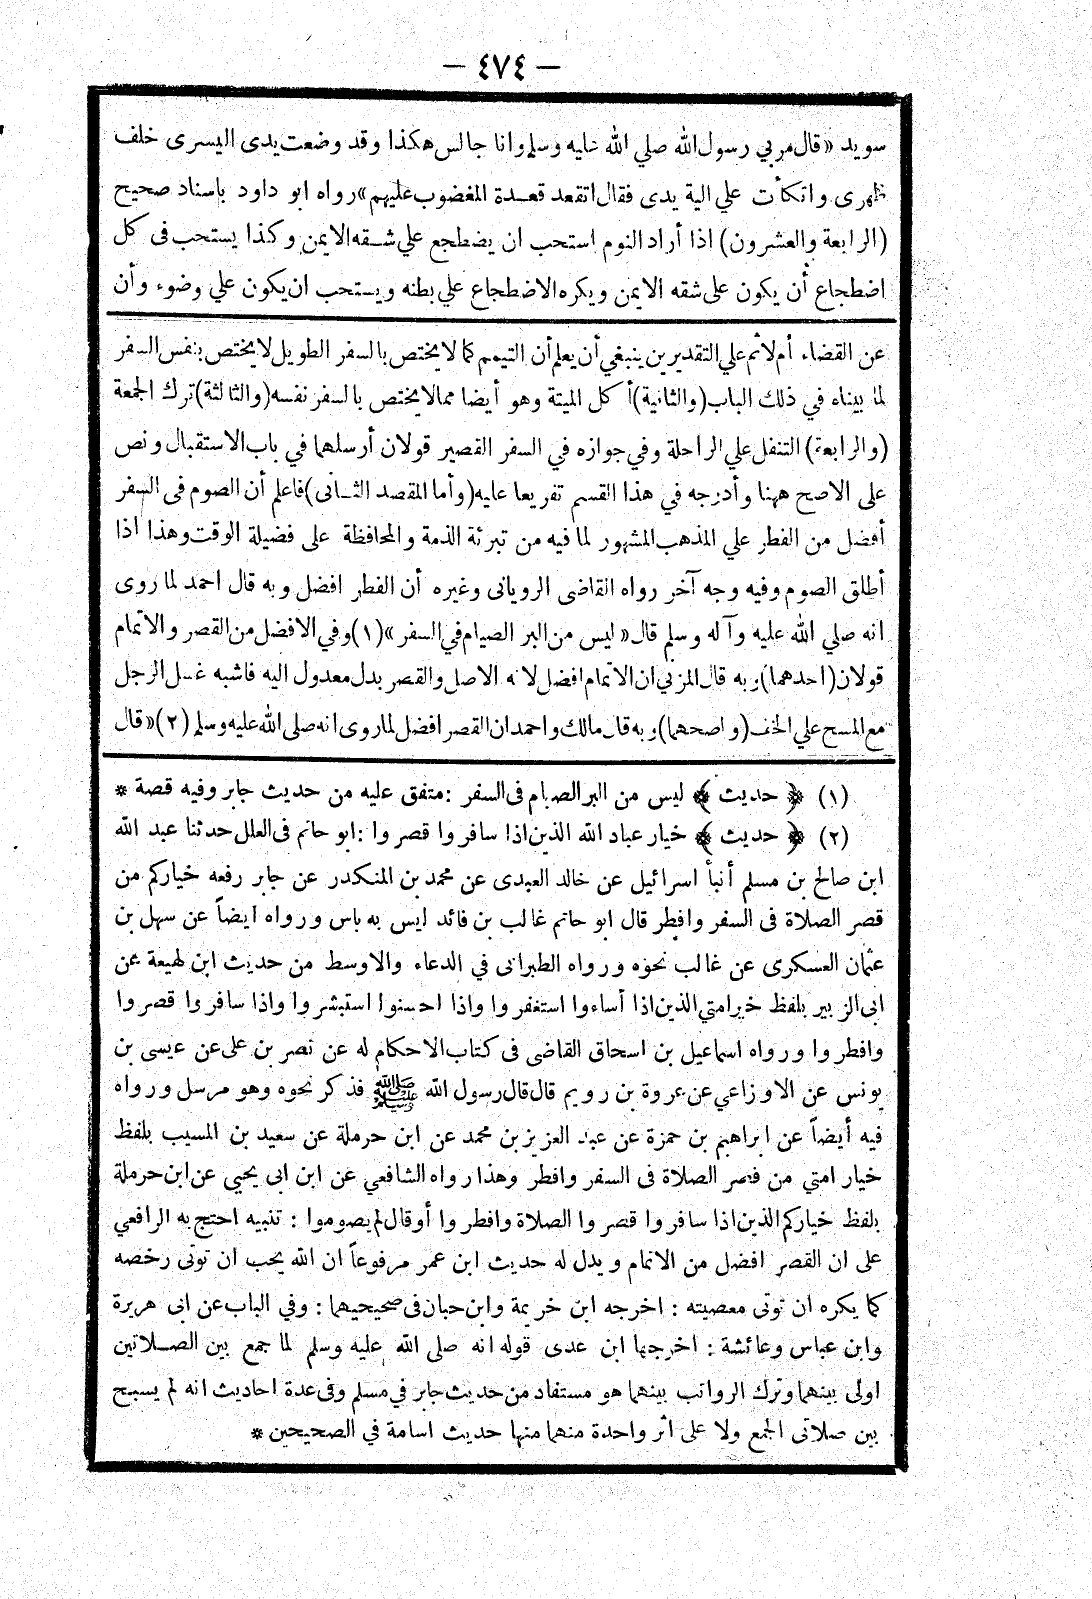 — ٤٧٤ —
سويد «قال مر بي رسول الله صلي الله عليه وسلم وانا جالس هكذا وقد وضعت يدى اليسرى خلف
ظهرى واتكأت علي الية يدى فقال اتقعد قعدة المغضوب عليهم» رواه ابو داود باسناد صحيح
(الرابعة والعشرون) اذا أراد النوم استحب ان يضطجع علي شقه الايمن وكذا يستحب فى كل
اضطجاع أن يكون على شقه الايمن ويكره الاضطجاع علي بطنه ويستحب ان يكون علي وضوء وأن
عن القضاء أم لا ثم علي التقديرين ينبغي أن يعلم أن التيمم كما لا يختص بالسفر الطويل لا يختص بنفس السفر
لما بيناه في ذلك الباب (والثانية) أكل الميتة وهو أيضا مما لا يختص بالسفر نفسه (والثالثة) ترك الجمعة
(والرابعة) التنفل علي الراحلة وفي جوازه في السفر القصير قولان أرسلهما في باب الاستقبال ونص
على الاصح ههنا وأدرجه في هذا القسم تفريعا عليه (وأما المقصد الثانى) فاعلم أن الصوم فى السفر
أفضل من الفطر علي المذهب المشهور لما فيه من تبرئة الذمة والمحافظة على فضيلة الوقت وهذا اذا
أطلق الصوم وفيه وجه آخر رواه القاضى الرويانى وغيره أن الفطر افضل وبه قال احمد لما روى
انه صلي الله عليه وآله وسلم قال «ليس من البر الصيام في السفر» (١) وفي الافضل من القصر والاتمام
قولان (احدهما) وبه قال المزنى ان الاتمام افضل لانه الاصل والقصر بدل معدول اليه فاشبه غسل الرجل
مع المسح علي الخف (واصحهما) وبه قال مالك واحمد ان القصر افضل لما روى انه صلى الله عليه وسلم (٢) «قال
(١) ﴿ حديث ﴾ ليس من البر الصيام فى السفر : متفق عليه من حديث جابر وفيه قصة *
(٢) ﴿ حديث ﴾ خيار عباد الله الذين اذا سافروا قصروا : ابو حاتم فى العلل حدثنا عبد الله
ابن صالح بن مسلم أنبأ اسرائيل عن خالد العبدى عن محمد بن المنكدر عن جابر رفعه خياركم من
قصر الصلاة فى السفر وافطر قال ابو حاتم غالب بن فائد ليس به باس ورواه ايضاً عن سهل بن
عثمان العسكرى عن غالب نحوه ورواه الطبرانى في الدعاء والاوسط من حديث ابن لهيعة عن
ابى الزبير بلفظ خير امتي الذين اذا أساءوا استغفروا واذا احسنوا استبشروا واذا سافروا قصروا
وافطروا ورواه اسماعيل بن اسحاق القاضى فى كتاب الاحكام له عن نصر بن على عن عيسى بن
يونس عن الاوزاعي عن عروة بن رويم قال قال رسول الله ﷺ فذكر نحوه وهو مرسل ورواه
فيه أيضاً عن ابراهيم بن حمزة عن عبد العزيز بن محمد عن ابن حرملة عن سعيد بن المسيب بلفظ
خيار امتي من قصر الصلاة فى السفر وافطر وهذا رواه الشافعي عن ابن ابى يحيى عن ابن حرملة
بلفظ خياركم الذين اذا سافروا قصروا الصلاة وافطروا أو قال لم يصوموا : تنبيه احتج به الرافعي
على ان القصر افضل من الاتمام ويدل له حديث ابن عمر مرفوعاً ان الله يحب ان تؤتى رخصه
كما يكره ان تؤتى معصيته : اخرجه ابن خزيمة وابن حبان فى صحيحيهما : وفي الباب عن ابى هريرة
وابن عباس وعائشة : اخرجها ابن عدى قوله انه صلى الله عليه وسلم لما جمع بين الصلاتين
اولى بينهما وترك الرواتب بينهما هو مستفاد من حديث جابر في مسلم وفى عدة احاديث انه لم يسبح
بين صلاتى الجمع ولا على اثر واحدة منهما منها حديث اسامة في الصحيحين *